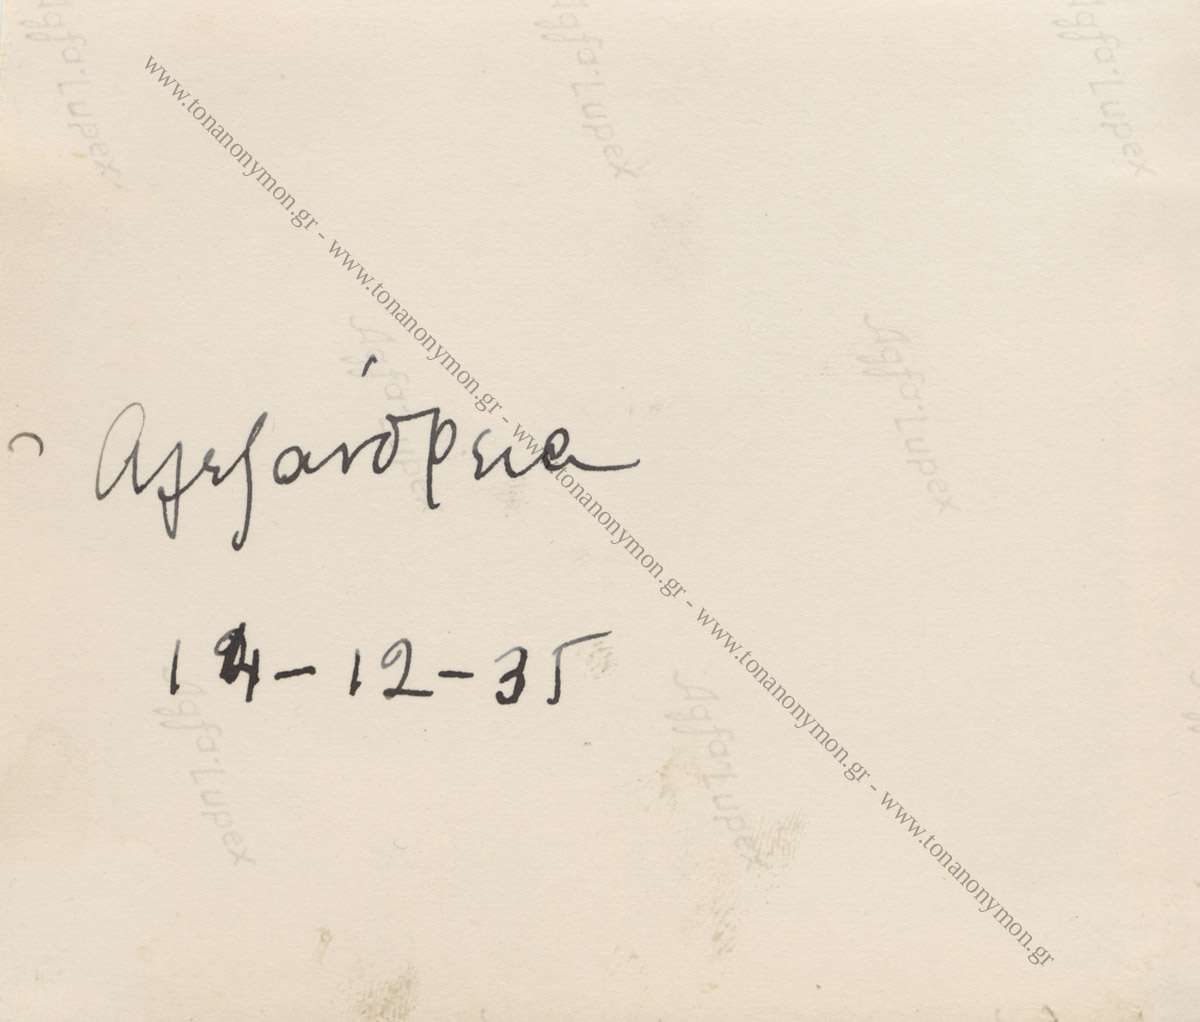 Agfa-Lupex
Agfa-Lupex
Agfa-Lupex
www.tonanonymon.gr - www.tonanonymon.gr - www.tonanonymon.gr - www.tonanonymon.gr - www.tonanonymon.gr
Agfa-Lupex
Agfa-Lupex
Αλεξάνδρεια
14-12-35
Agfa-Lupex
Agfa-Lupex